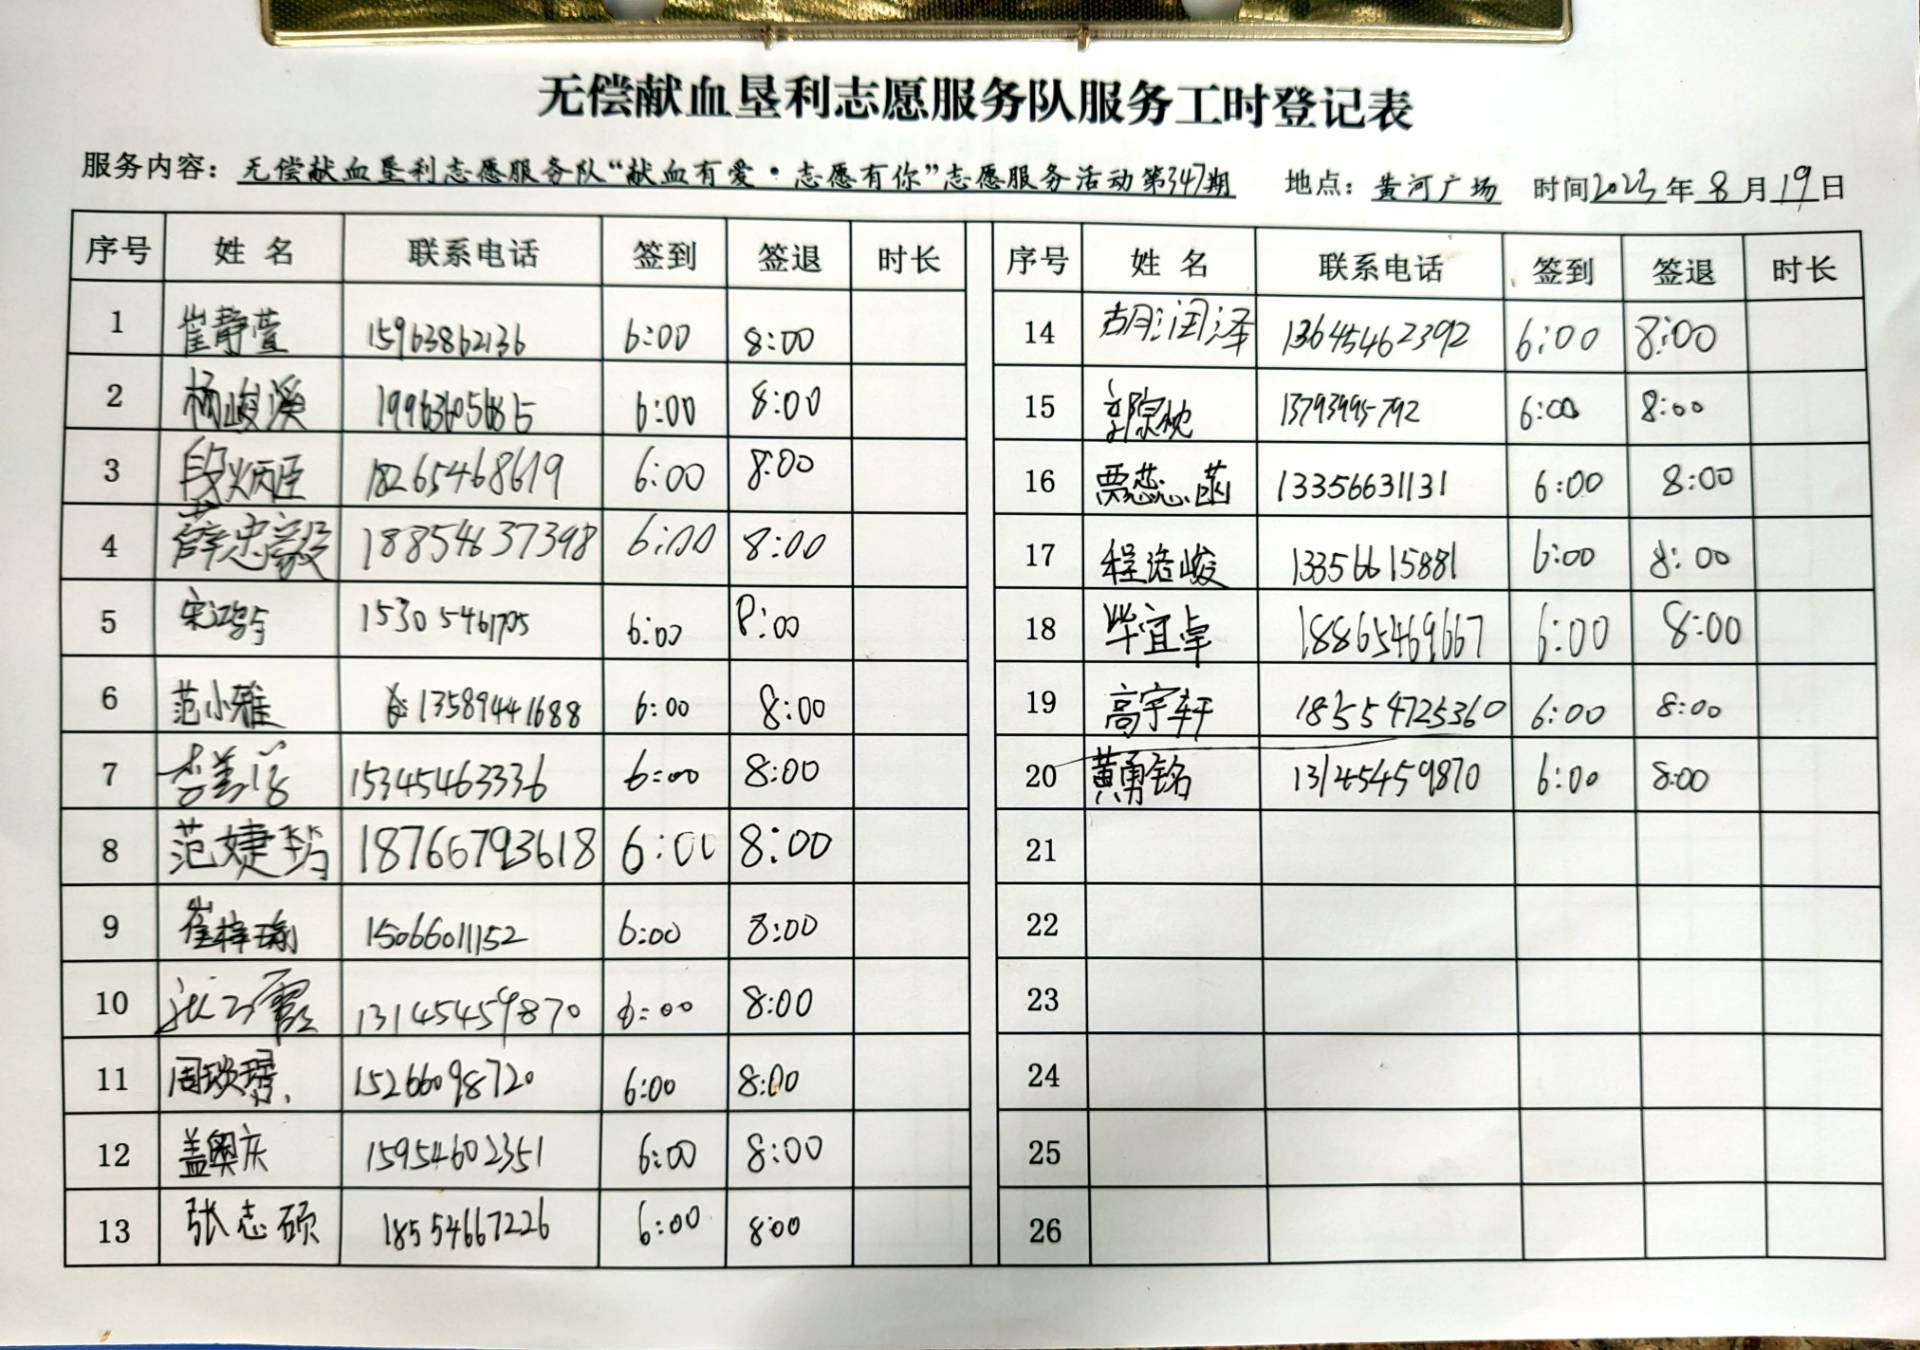 无偿献血垦利志愿服务队服务工时登记表
服务内容：无偿献血垦利志愿服务队“献血有爱·志愿有你”志愿服务活动第347期 地点：黄河广场 时间2023年8月19日
序号 姓名 联系电话 签到 签退 时长 序号 姓名 联系电话 签到 签退 时长
1 崔静萱 15963862136 6:00 8:00
2 杨峻溪 6:00 8:00
3 段炳臣 18265468619 6:00 8:00
4 薛忠毅 18854637398 6:00 8:00
5 宋 15305461705 6:00 8:00
6 范小雅 13589441688 6:00 8:00
7 15345463336 6:00 8:00
8 范婕 18766793618 6:00 8:00
9 崔梓瑜 15066011152 6:00 8:00
10 13145459870 6:00 8:00
11 周 15266098720 6:00 8:00
12 盖奥庆 15954602351 6:00 8:00
13 张志硕 18554667226 6:00 8:00
14 胡润泽 13645462392 6:00 8:00
15 13793995792 6:00 8:00
16 贾蕊菡 13356631131 6:00 8:00
17 程浩峻 13356615881 6:00 8:00
18 毕宜卓 18865469667 6:00 8:00
19 高宇轩 18554725360 6:00 8:00
20 黄勇铭 13145459870 6:00 8:00
21
22
23
24
25
26